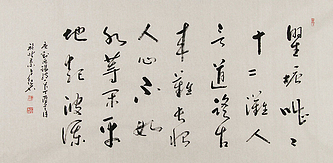 瞿塘嘈〻
十二灘人
言道路古
来難長恨
人心不如
水等閒平
地起波瀾